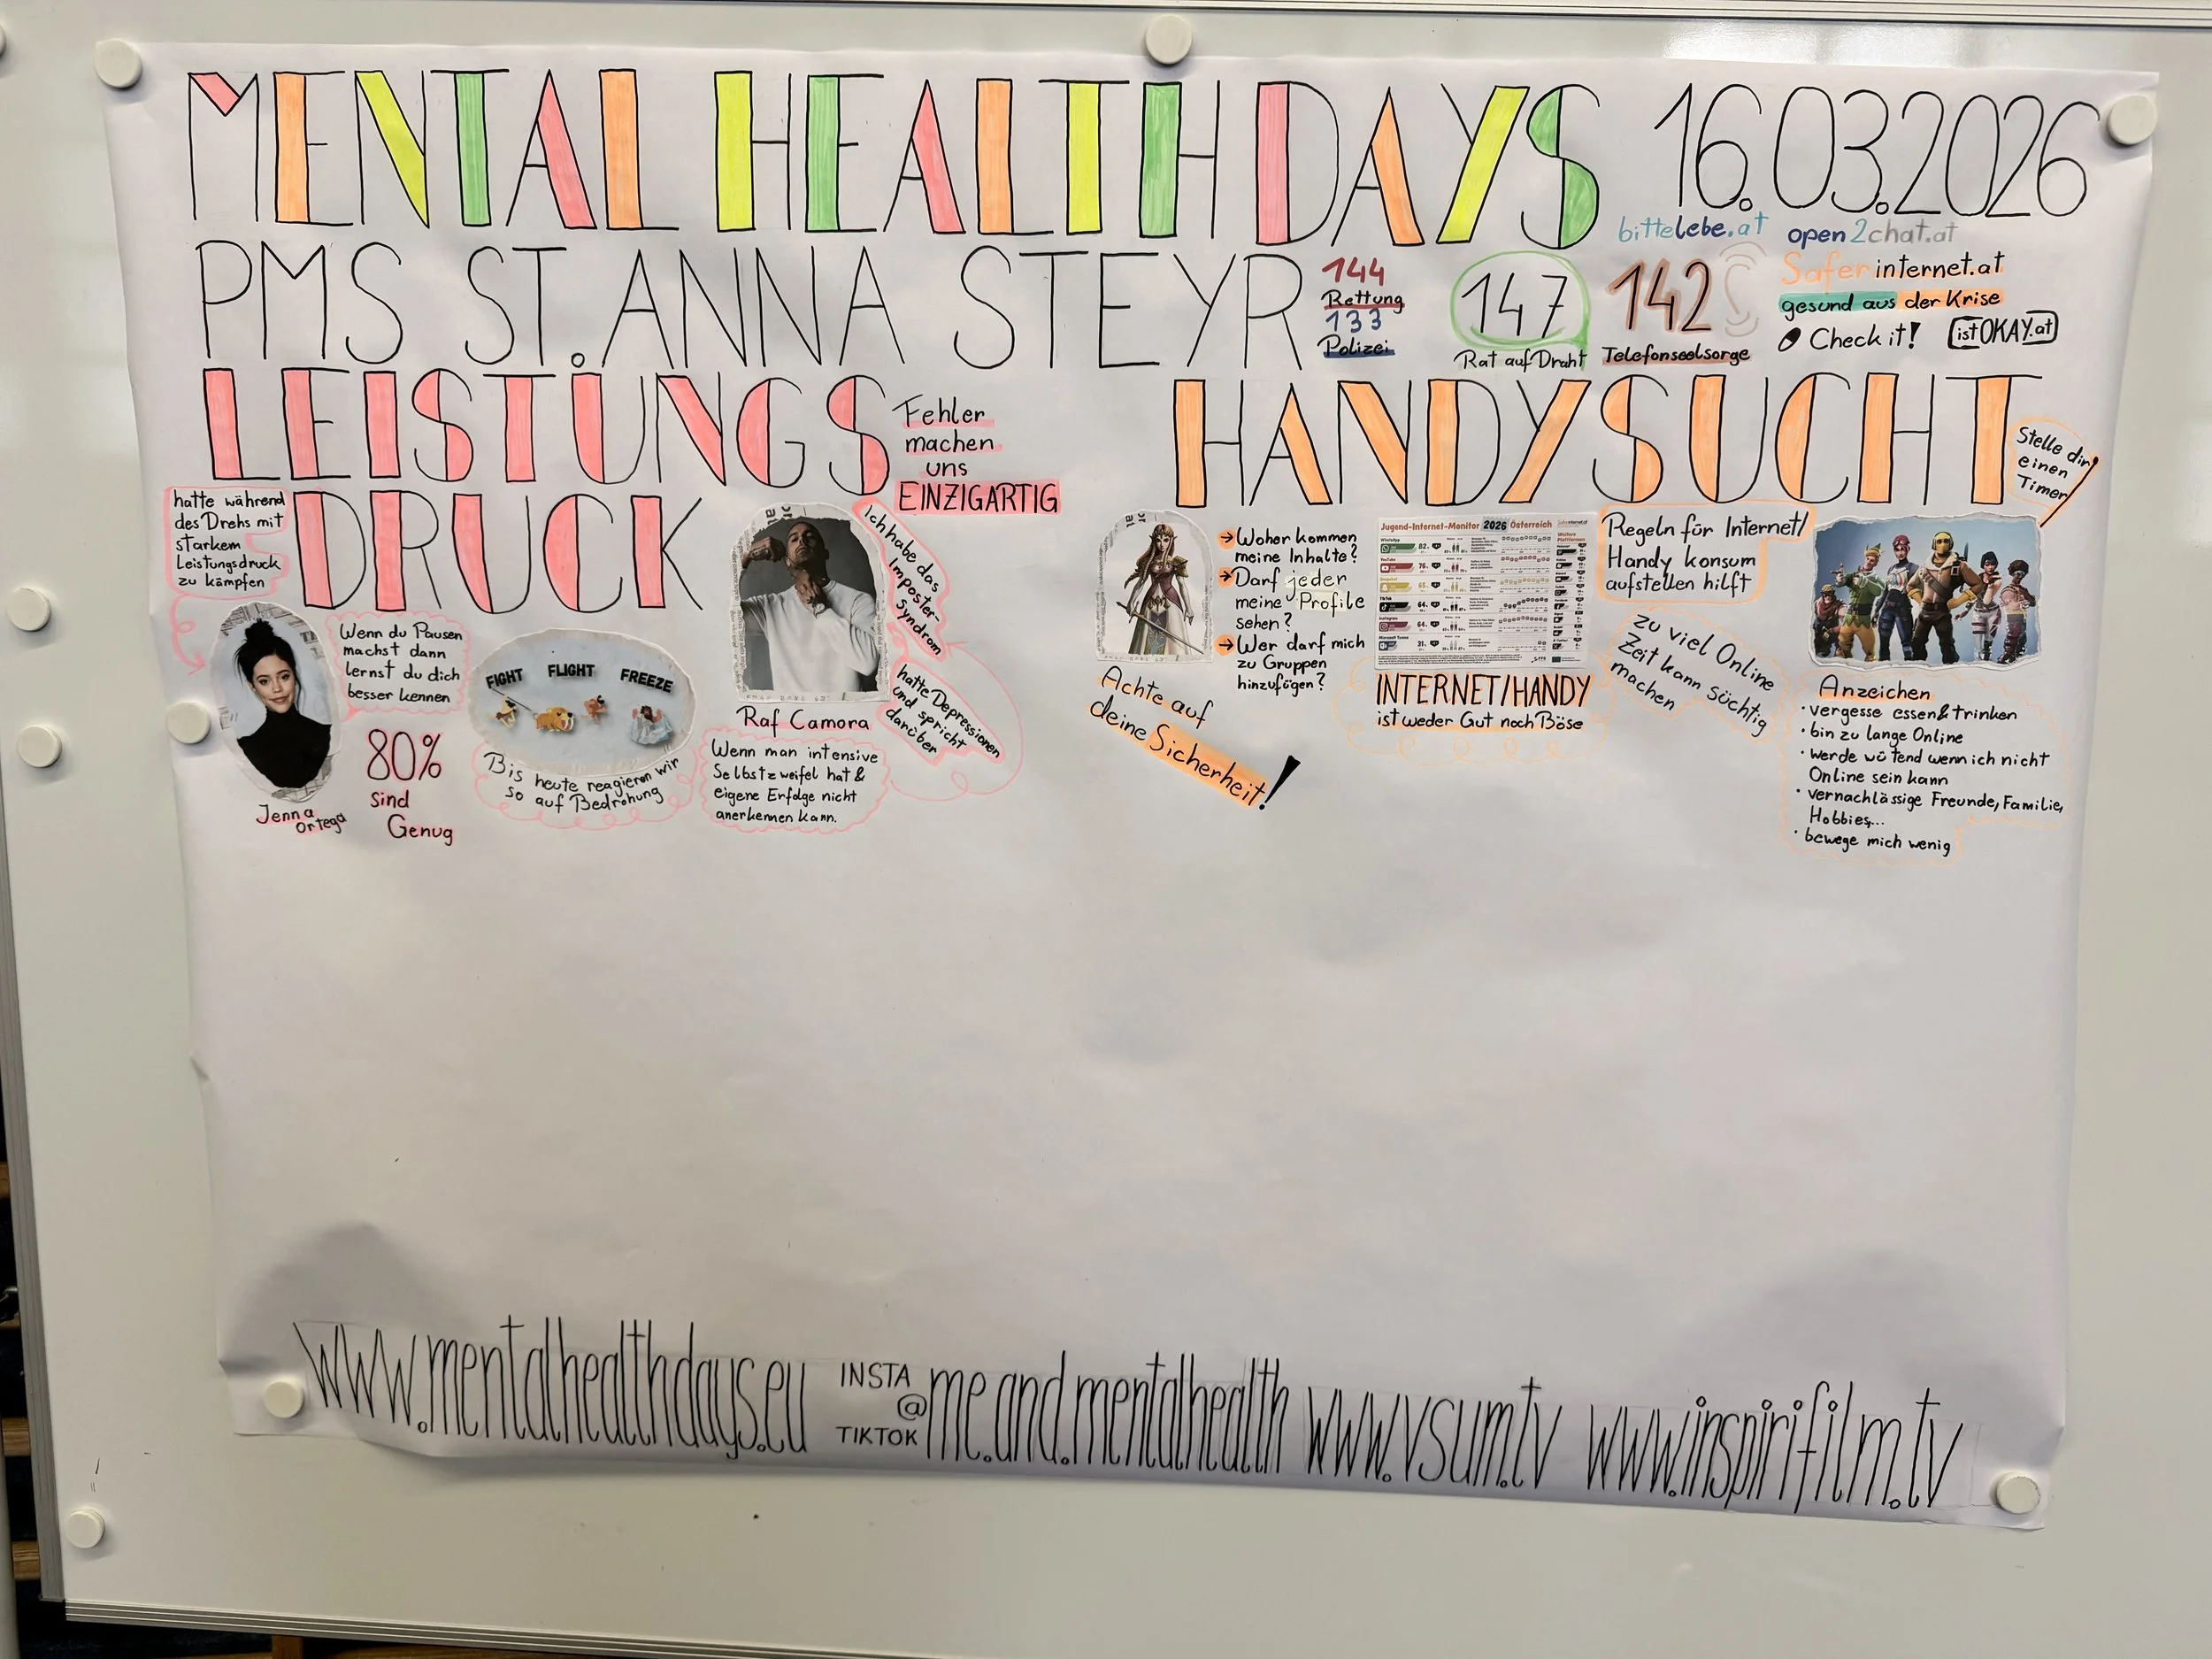 MENTAL HEALTH DAYS 16.03.2026
bittelebe.at open2chat.at
PMS ST. ANNA STEYR
144
Rettung
133
Polizei
147
Rat auf Draht
142
Telefonseelsorge
Saferinternet.at
gesund aus der Krise
Check it!
istOKAY.at
LEISTUNGS
DRUCK
Fehler
machen
uns
EINZIGARTIG
hatte während
des Drehs mit
starkem
Leistungsdruck
zu kämpfen
Jenna
Ortega
Wenn du Pausen
machst dann
lernst du dich
besser kennen
80%
sind
Genug
FIGHT FLIGHT FREEZE
Bis heute reagieren wir
so auf Bedrohung
Raf Camora
Ich habe das
Imposter-
Syndrom
hatte Depressionen
und spricht
darüber
Wenn man intensive
Selbstzweifel hat &
eigene Erfolge nicht
anerkennen kann.
HANDYSUCHT
Stelle dir
einen
Timer!
Achte auf
deine Sicherheit!
→ Woher kommen
meine Inhalte?
→ Darf jeder
meine Profile
sehen?
→ Wer darf mich
zu Gruppen
hinzufügen?
Jugend-Internet-Monitor 2026 Österreich
INTERNET/HANDY
ist weder Gut noch Böse
Regeln für Internet/
Handy konsum
aufstellen hilft
zu viel Online
Zeit kann süchtig
machen
Anzeichen
• vergesse essen & trinken
• bin zu lange Online
• werde wütend wenn ich nicht
Online sein kann
• vernachlässige Freunde, Familie,
Hobbies,...
• bewege mich wenig
www.mentalhealthdays.eu
INSTA
@
TIKTOK
me.and.mentalhealth
www.vsum.tv
www.inspirifilm.tv